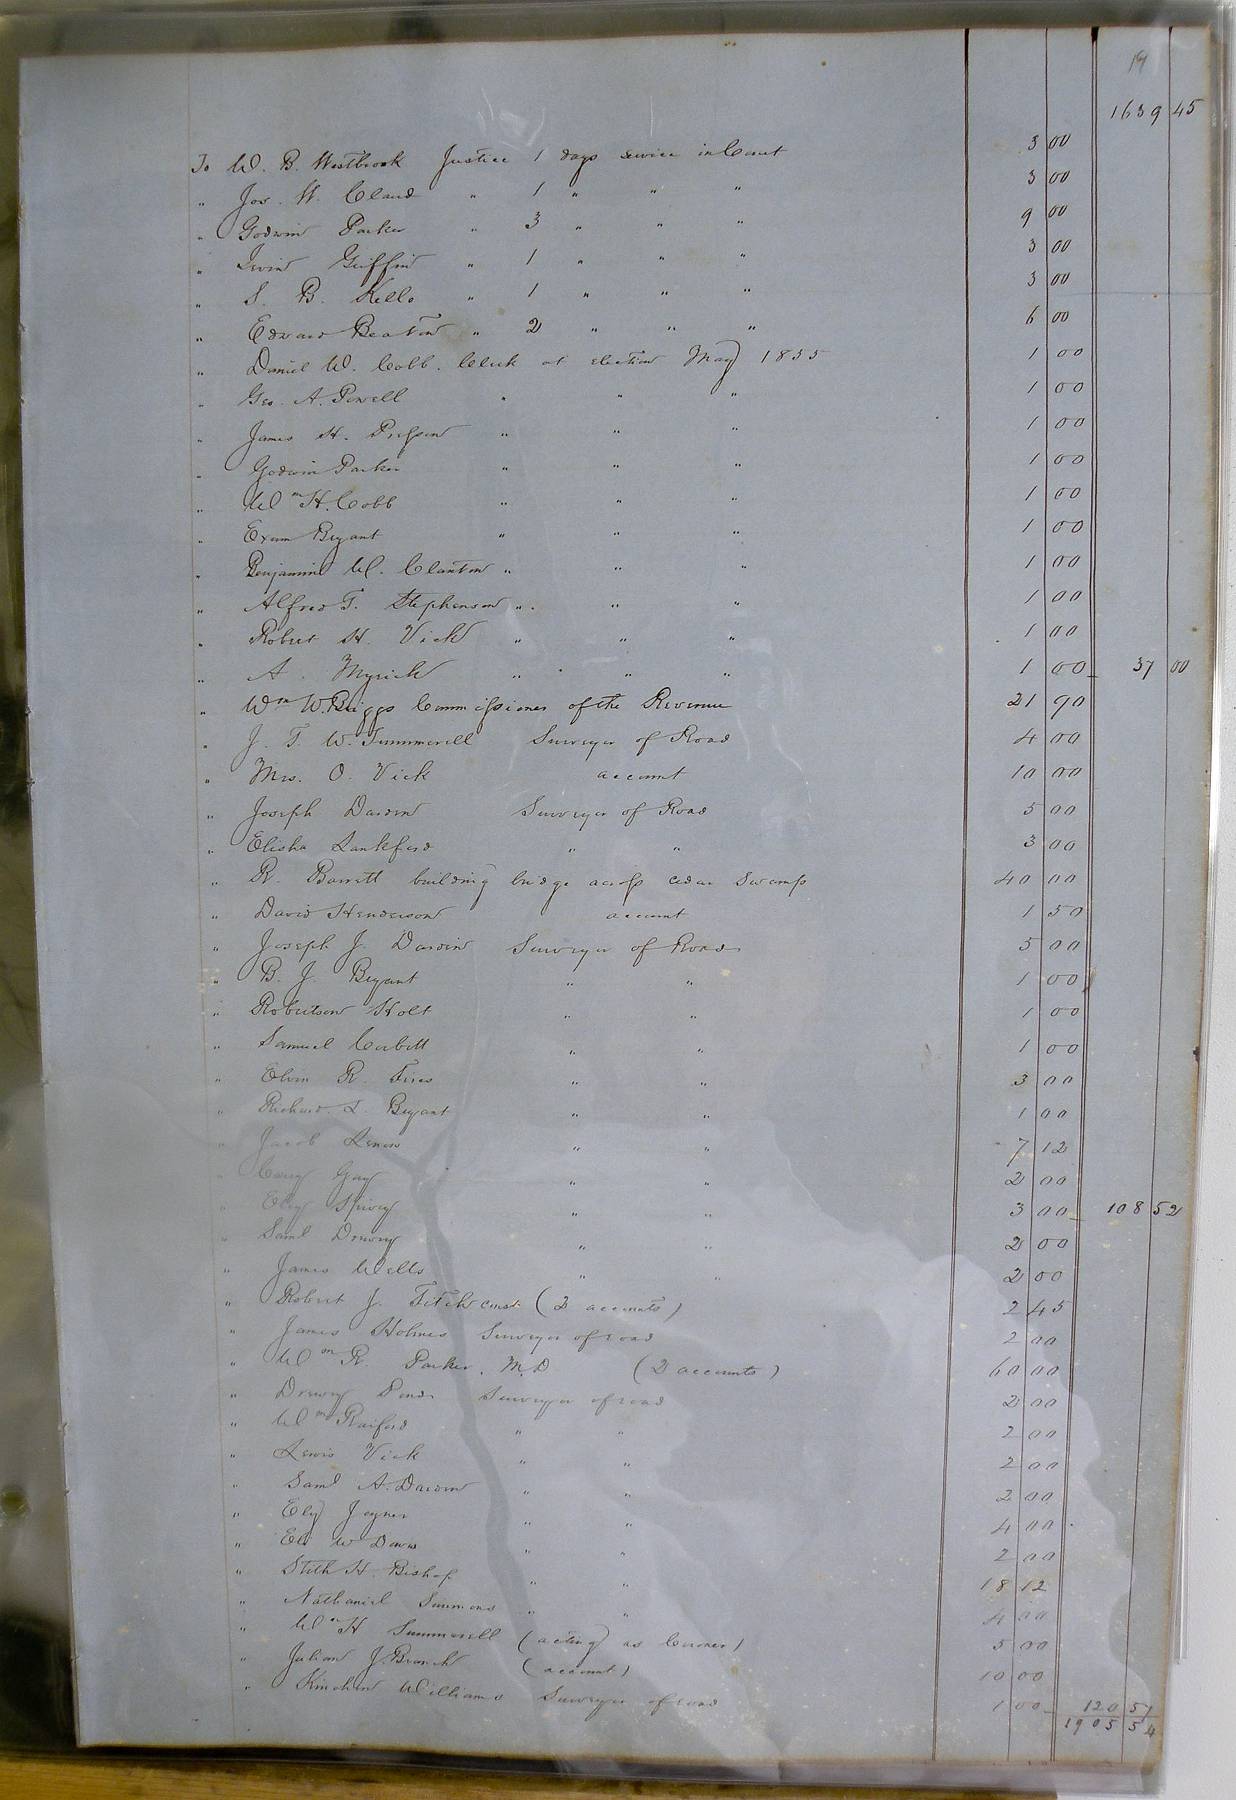 19
1639 45
To W. B. Westbrook Justice 1 days service in Court 3 00
" Jos. W. Claud " 1 " " " 3 00
" Godwin Parker " 3 " " " 9 00
" Irvin Griffin " 1 " " " 3 00
" S. B. Kello " 1 " " " 3 00
" Edward Beaton " 2 " " " 6 00
" Daniel W. Cobb. Clerk at election May 1855 1 00
" Geo. A. Powell " " " 1 00
" James H. " " " 1 00
" Godwin Parker " " " 1 00
" Wm H. Cobb " " " 1 00
" Exum Bryant " " " 1 00
" Benjamin W. Clanton " " " 1 00
" Alfred T. Stephenson " " " 1 00
" Robert H. Vick " " " 1 00
" A. Myrick " " " 1 00 37 00
" Wm W. Briggs Commissioner of the Revenue 21 90
" J. T. W. Summerell Surveyor of Road 4 00
" Mrs. O. Vick account 10 00
" Joseph Darden Surveyor of Road 5 00
" Elisha Lankford " " 3 00
" R. Barrett building bridge across cedar Swamp 40 00
" David Henderson account 1 50
" Joseph J. Darden Surveyor of Road 5 00
" B. J. Bryant " " 1 00
" Robertson Holt " " 1 00
" Samuel Corbitt " " 1 00
" R. " " 3 00
" Richard L. Bryant " " 1 00
" Jacob " " 7 12
" Gay " " 2 00
" Spivey " " 3 00 108 52
" Saml Drewry " " 2 00
" James Wells " " 2 00
" Robert J. const (2 accounts) 2 45
" James Holmes Surveyor of road 2 00
" Wm R. Parker. M.D (2 accounts) 60 00
" Drewry Pond Surveyor of road 2 00
" Wm Raiford " " 2 00
" Lewis Vick " " 2 00
" Saml A. Darden " " 2 00
" Ely Joyner " " 4 00
" W Davis " " 2 00
" Stith H. Bishop " " 18 12
" Nathaniel Simmons " " 4 00
" Wm H Summerell (acting as Coroner) 5 00
" Julian J. Branch (account) 10 00
" Kinchin Williams Surveyor of road 1 00 120 57
1905 54